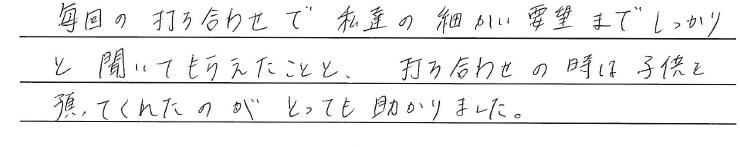 毎回の打ち合わせで私達の細かい要望までしっかり
と聞いてもらえたことと、打ち合わせの時は子供を
預ってくれたのがとっても助かりました。